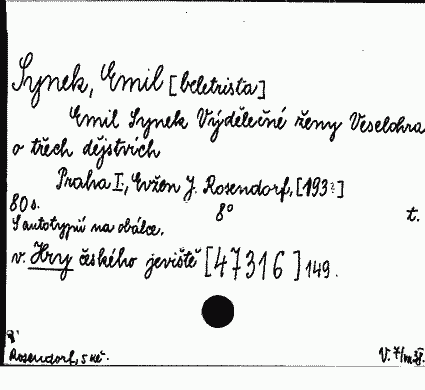 Synek, Emil [beletrista]
Emil Synek Výdělečné ženy Veselohra
o třech dějstvích
Praha I, Evžen J. Rosendorf, [193?]
80 s. 8° t.
S autotypií na obálce.
v. Hry českého jeviště [47316] 149.
8'
Rosendorf, 5 Kč. V.